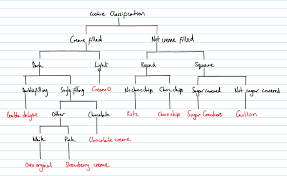 Cookie Classification
Creme filled Not creme filled
Dark Light Round Square
Double filling Single filling CreamO No choc chip Choc chip Sugar covered Not sugar covered
Double delight Other Chocolate Ritz Choc chips Sugar Crackers Guillon
White Pink Chocolate creme
Oreo original Strawberry creme